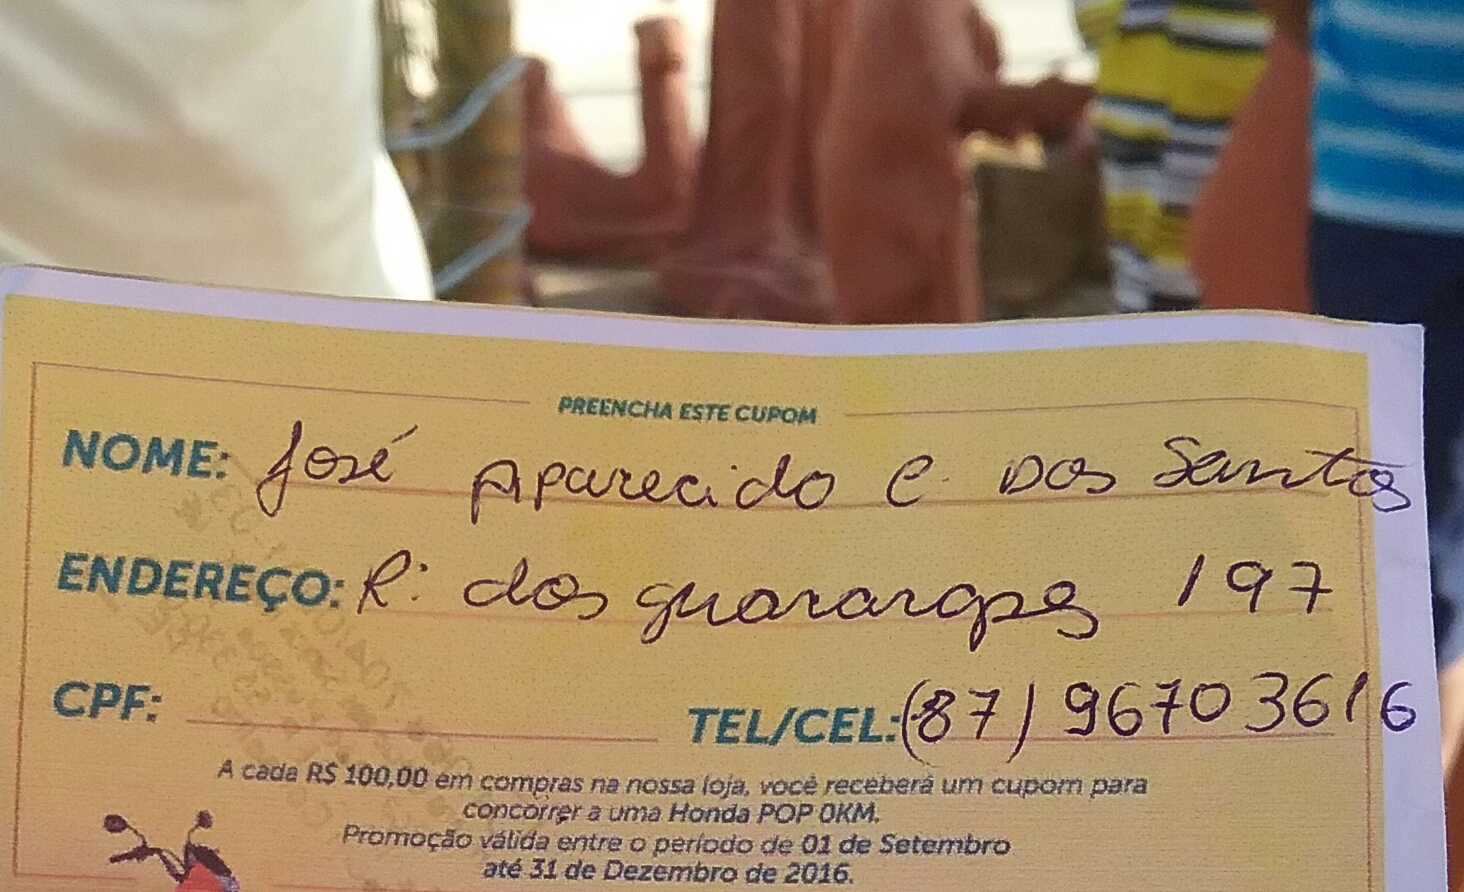 PREENCHA ESTE CUPOM
NOME: José Aparecido C. Dos Santos
ENDEREÇO: R: dos guararapes 197
CPF:
TEL/CEL: (87) 96703616
A cada R$ 100,00 em compras na nossa loja, você receberá um cupom para
concorrer a uma Honda POP 0KM.
Promoção válida entre o período de 01 de Setembro
até 31 de Dezembro de 2016.